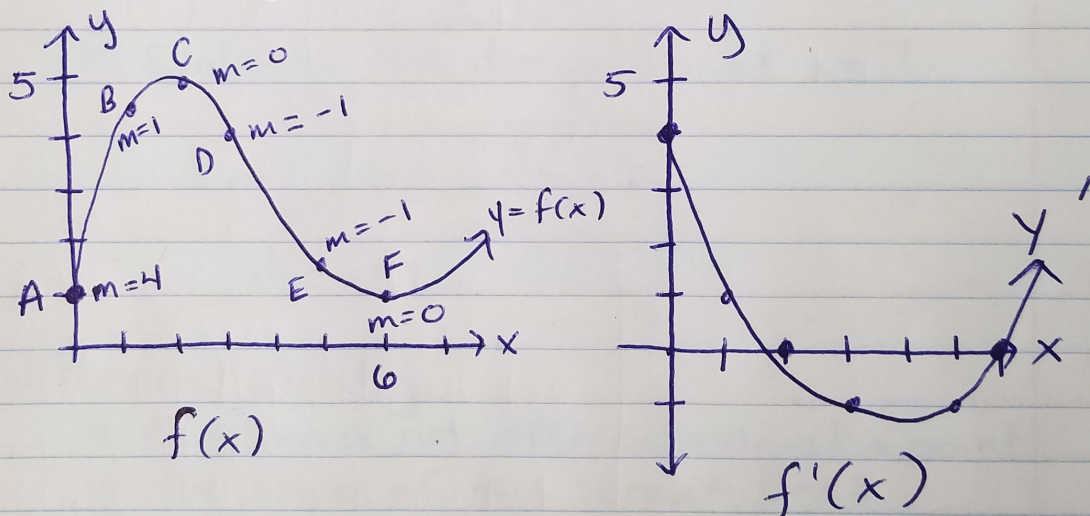 y
5
C
m=0
B
m=1
m=-1
D
m=-1
y=f(x)
A
m=4
E
F
m=0
x
6
f(x)
y
5
y
x
f'(x)